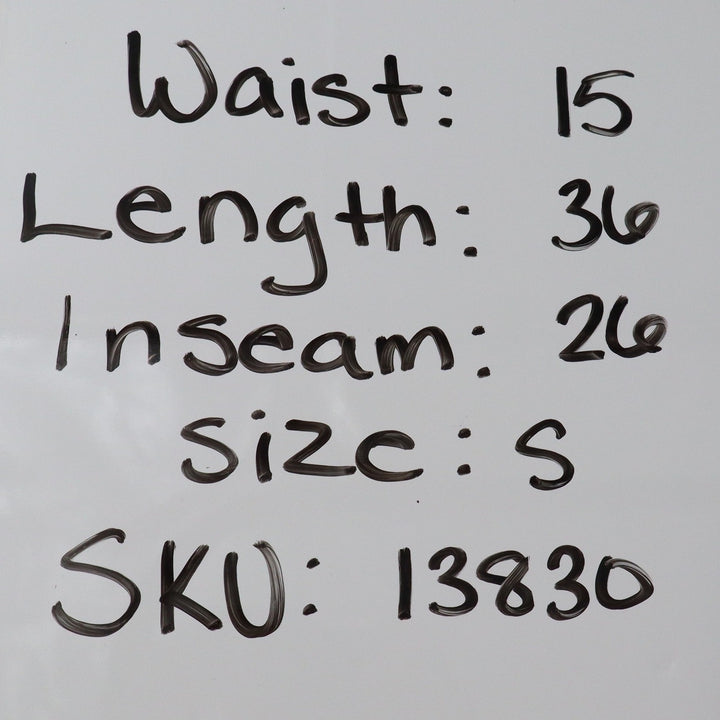 Waist: 15
Length: 36
Inseam: 26
Size: S
SKU: 13830